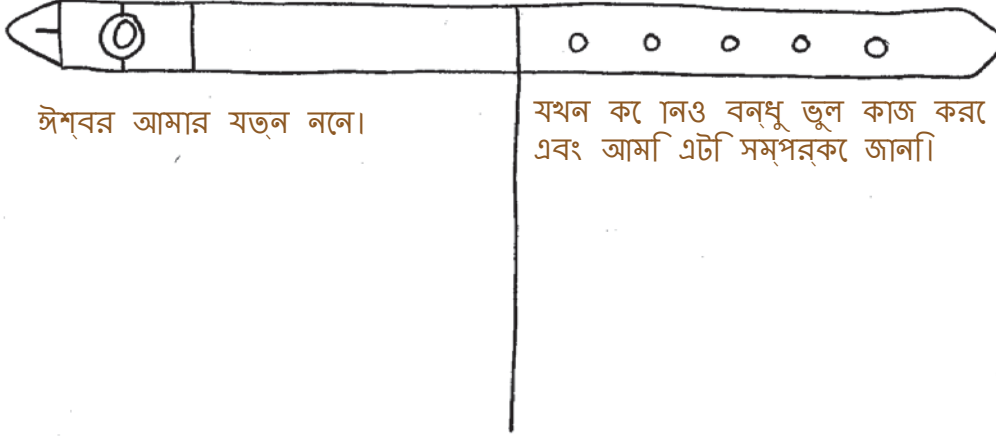 ঈশ্বর আমার যত্ন নেন।
যখন কোনও বন্ধু ভুল কাজ করে
এবং আমি এটি সম্পর্কে জানি।